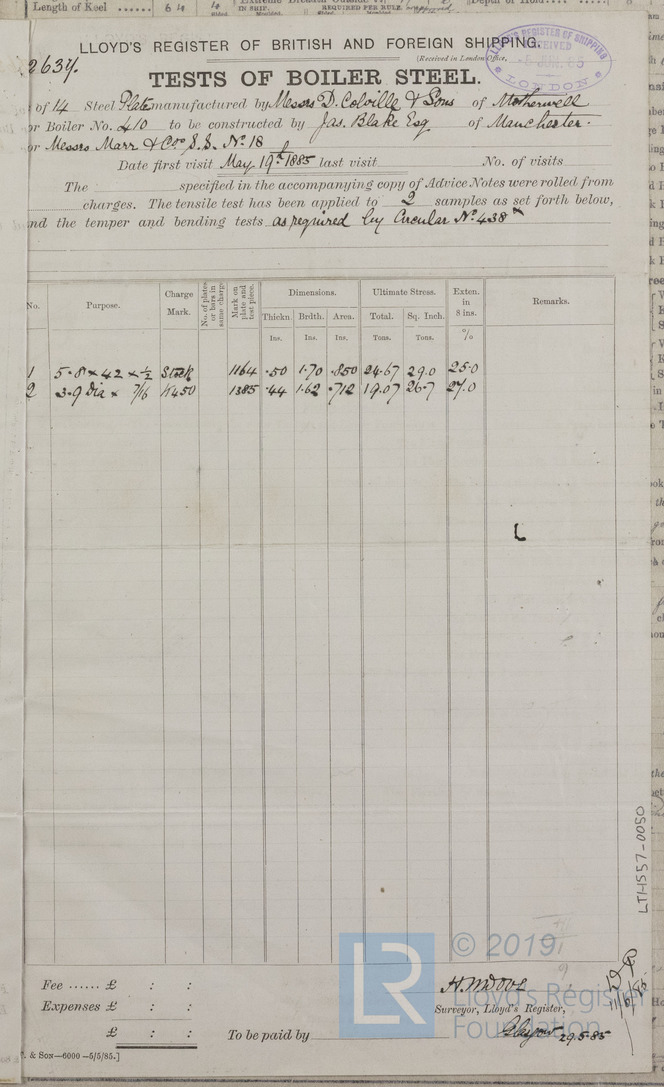 Length of Keel ...... 64
IN SHIP. REQUIRED PER RULE.
LLOYD'S REGISTER OF BRITISH AND FOREIGN SHIPPING.
(Received in London Office,
LLOYD'S REGISTER OF SHIPPING
RECEIVED
LONDON
2634.
TESTS OF BOILER STEEL.
of 14 Steel Plates manufactured by Messrs D. Colville & Sons of Motherwell
or Boiler No. 410 to be constructed by Jas. Blake Esq of Manchester.
or Messrs Marr & Cos S.S. No. 18
Date first visit May 19th 1885 last visit No. of visits
The specified in the accompanying copy of Advice Notes were rolled from
charges. The tensile test has been applied to 2 samples as set forth below,
nd the temper and bending tests as required by Circular No. 438
No. Purpose. Charge Mark. No. of plates or bars in same charge Mark on plate and test piece. Dimensions. Ultimate Stress. Exten. in 8 ins. Remarks.
Thickn. Brdth. Area. Total. Sq. Inch.
Ins. Ins. Ins. Tons. Tons. %
1 5.8 x 42 x ½ Stock 1164 .50 1.70 .850 24.67 29.0 25.0
2 3.9 Dia x 7/16 K450 1385 .44 1.62 .712 19.07 26.7 27.0
L
LTH557-0050
© 2019
LR
Lloyd's Register
Foundation
Fee ...... £ : :
Expenses £ : :
£ : :
To be paid by
Surveyor, Lloyd's Register,
Glasgow 29.5.85
. & SON—6000—5/5/85.]